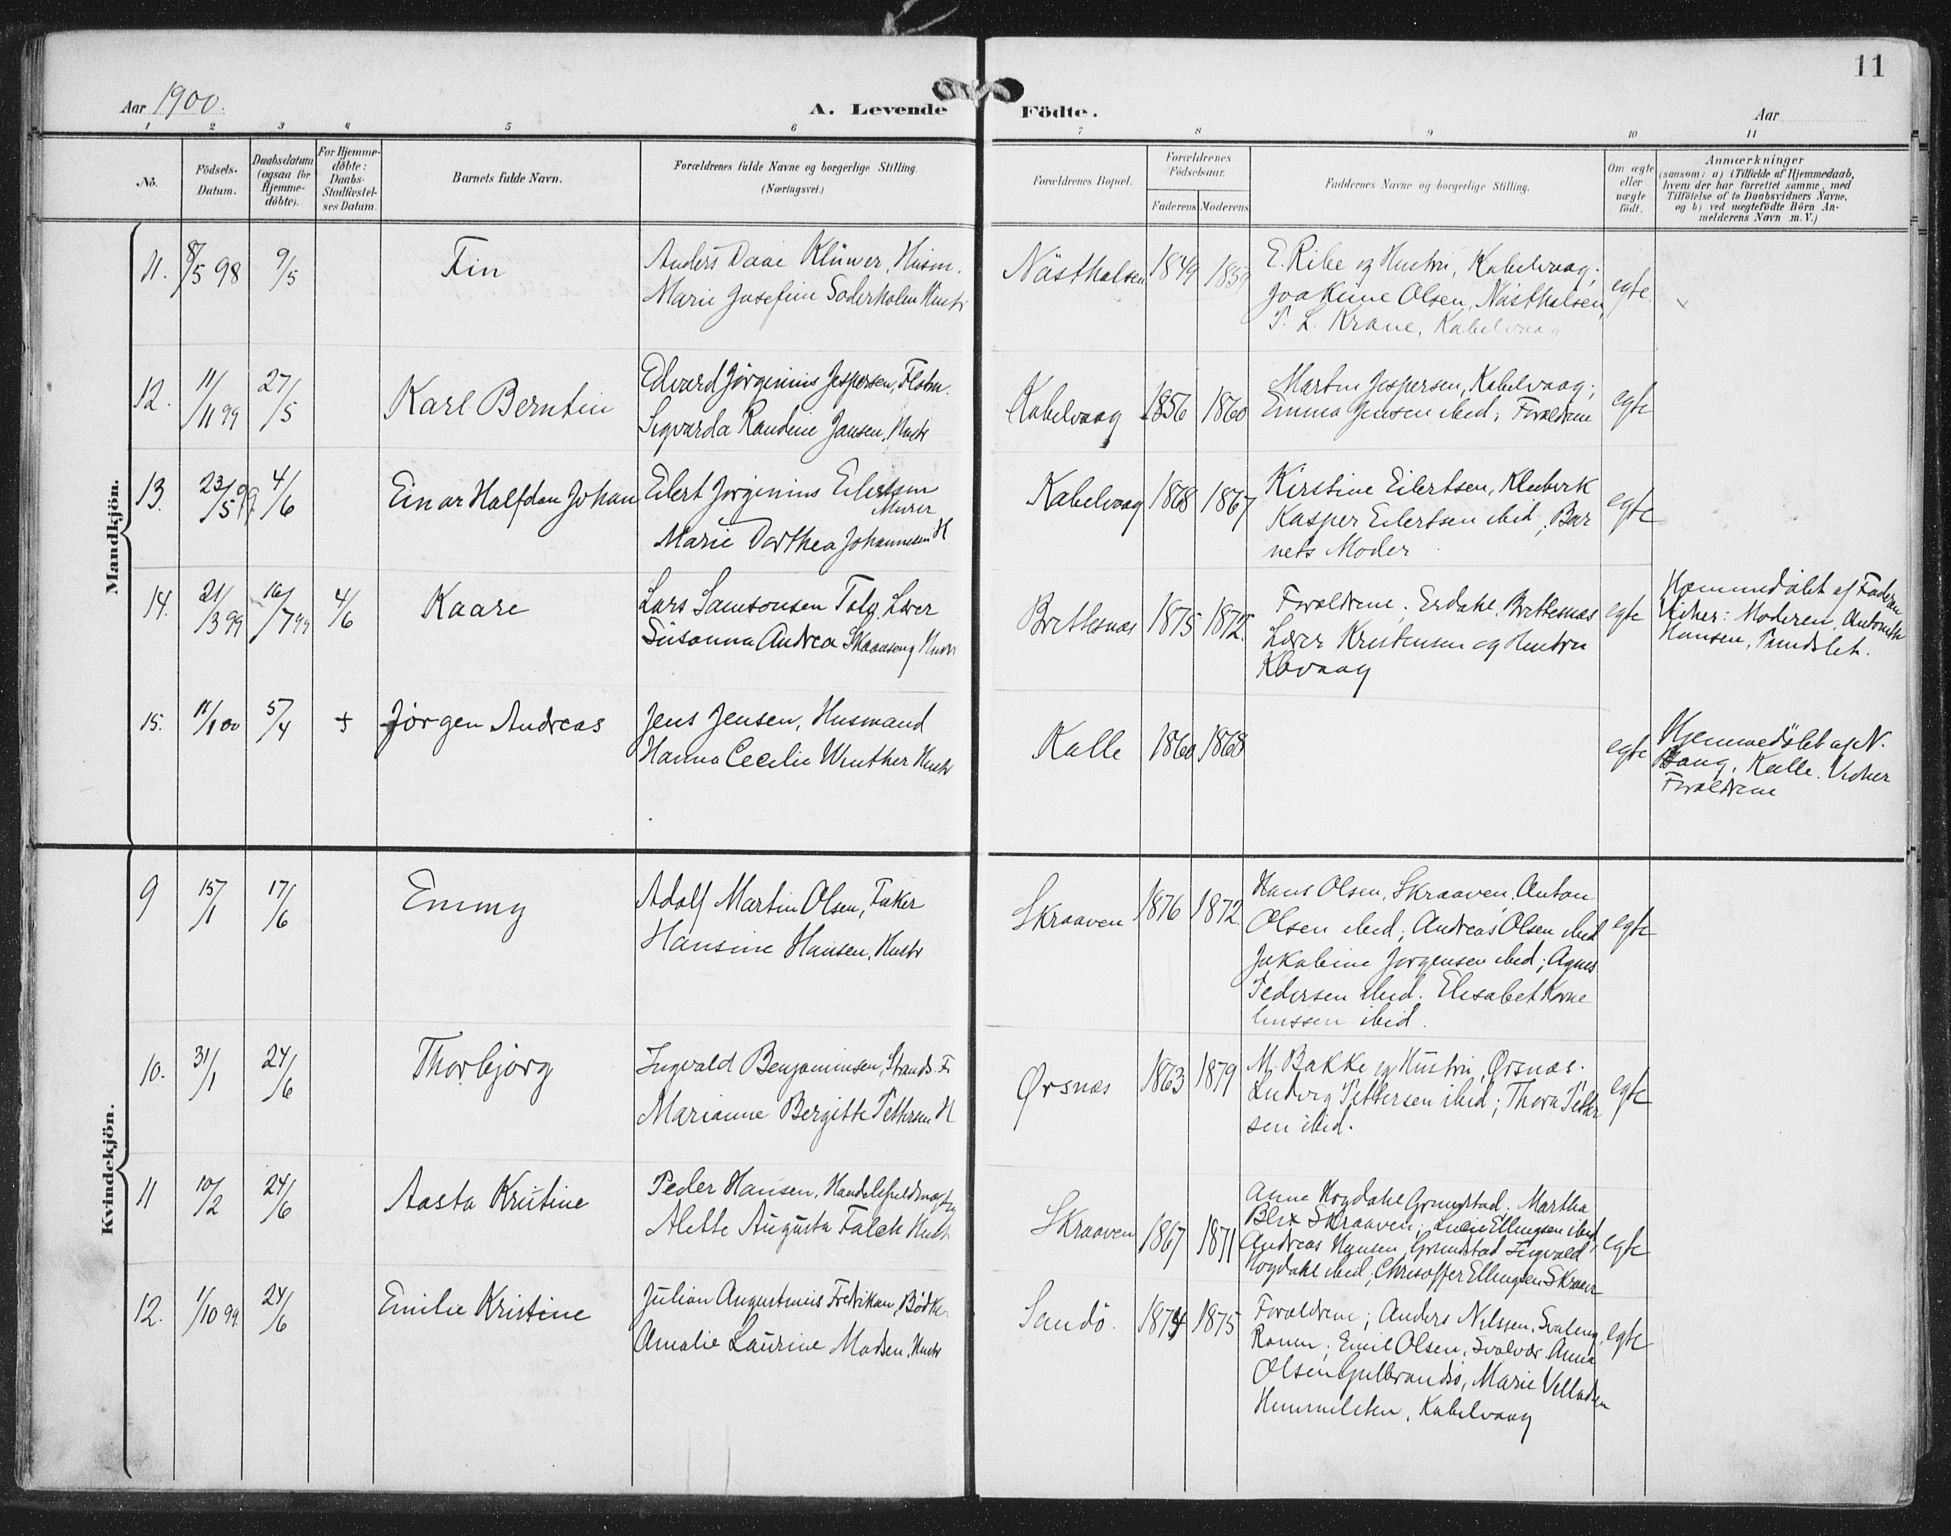 11
Aar 1900.
A. Levende Födte.
Aar
1 2 3 4 5 6 7 8 9 10 11
No.
Födsels-Datum.
Daabsdatum (ogsaa for Hjemme-döbte).
For Hjemme-döbte: Daabs-Stadfæstel-ses Datum.
Barnets fulde Navn.
Forældrenes fulde Navne og borgerlige Stilling.
(Næringsvei.)
Forældrenes Bopæl.
Forældrenes Födselsaar.
Faderens Moderens
Faddernes Navne og borgerlige Stilling.
Om ægte eller uægte födt.
Anmærkninger
(saasom: a) i Tilfælde af Hjemmedaab,
hvem der har forrettet samme, med
Tilföielse af to Daabsvidners Navne,
og b) ved uægtefödte Börn An-
melderens Navn m. V.)
Mandkjön.
11. 8/5 98 9/5 Fin
Anders Daae Klüwer, Husm.
Marie Josefine Söderholm Hustr
Nästhalsen 1849
E. Ribe og Hustru, Kabelvaag;
Joakime Olsen, Nästhalsen,
P. L. Krane, Kabelvaag
egte
12. 11/11 99 27/5 Karl Berntin
Edvard Jørginius Jespersen,
Sigvarda Randine Jansen, Hustr
Kabelvaag 1856 1860
Martin Jespersen, Kabelvaag;
Emma Jensen ibid; Forældrene
egte
13. 23/5 99 4/6 Einar Halfdan Johan
Eilert Jørginius Eilertsen
Murer
Marie Dorthea Johannesen H
Kabelvaag 1868 1867
Kirstine Eilertsen,
Kasper Eilertsen ibid; Bar
nets Moder
egte
14. 21/3 99 16/7 99 4/6 Kaare
Lars Samsonsen
Susanna Andrea Hustr
Brettesnæs 1875 1872.
Forældrene; Brettesnæs
Lærer Kristensen og Hustru
egte
Hjemmedøbt af Faderen
Vidner: Moderen,
Hansen,
15. 11/1 00 5/4 + Jørgen Andreas
Jens Jensen, Husmand
Hanna Cecilie Winther Hustr
Kalle 1860 1868
egte
Hjemmedøbt af N.
Haug, Kalle. Vidner
Forældrene
Kvindekjön.
9 15/1 17/6 Emmy
Adolf Martin Olsen, Fisker
Hansine Hansen, Hustr
Skraaven 1876 1872
Hans Olsen, Skraaven, Anton
Olsen ibid; Andreas Olsen ibid
Jakobine Jørgensen ibid; Agnes
Pedersen ibid. Elisabet Korne
liussen ibid.
egte
10. 31/1 24/6 Thorbjørg
Ingvald Benjaminsen, Strands. F.
Marianne Bergitte Pettersen H
Ørsnæs 1863 1879
M. Bakke og Hustru, Ørsnæs.
Ludvig Pettersen ibid; Thora Petter
sen ibid.
egte
11 10/2 24/6 Aasta Kristine
Peder Hansen,
Alette Augusta Falch Hustr
Skraaven 1867 1871
Anne Hogdahl Grundstad. Martha
Blix Skraaven; Lucie Ellingsen ibid,
Andreas Hansen, Grundstad Ingvald
Hogdahl ibid; Christoffer Ellingsen Skraaven
egte
12. 1/10 99 24/6 Emilie Kristine
Julian Augustinius Fredriksen,
Amalie Laurine Madsen, Hustr
Sandö. 1874 1875
Forældrene; Anders Nilssen,
Emil Olsen, Svolvær Anna
Olsen Gulbrandsø, Marie
Kabelvaag
egte